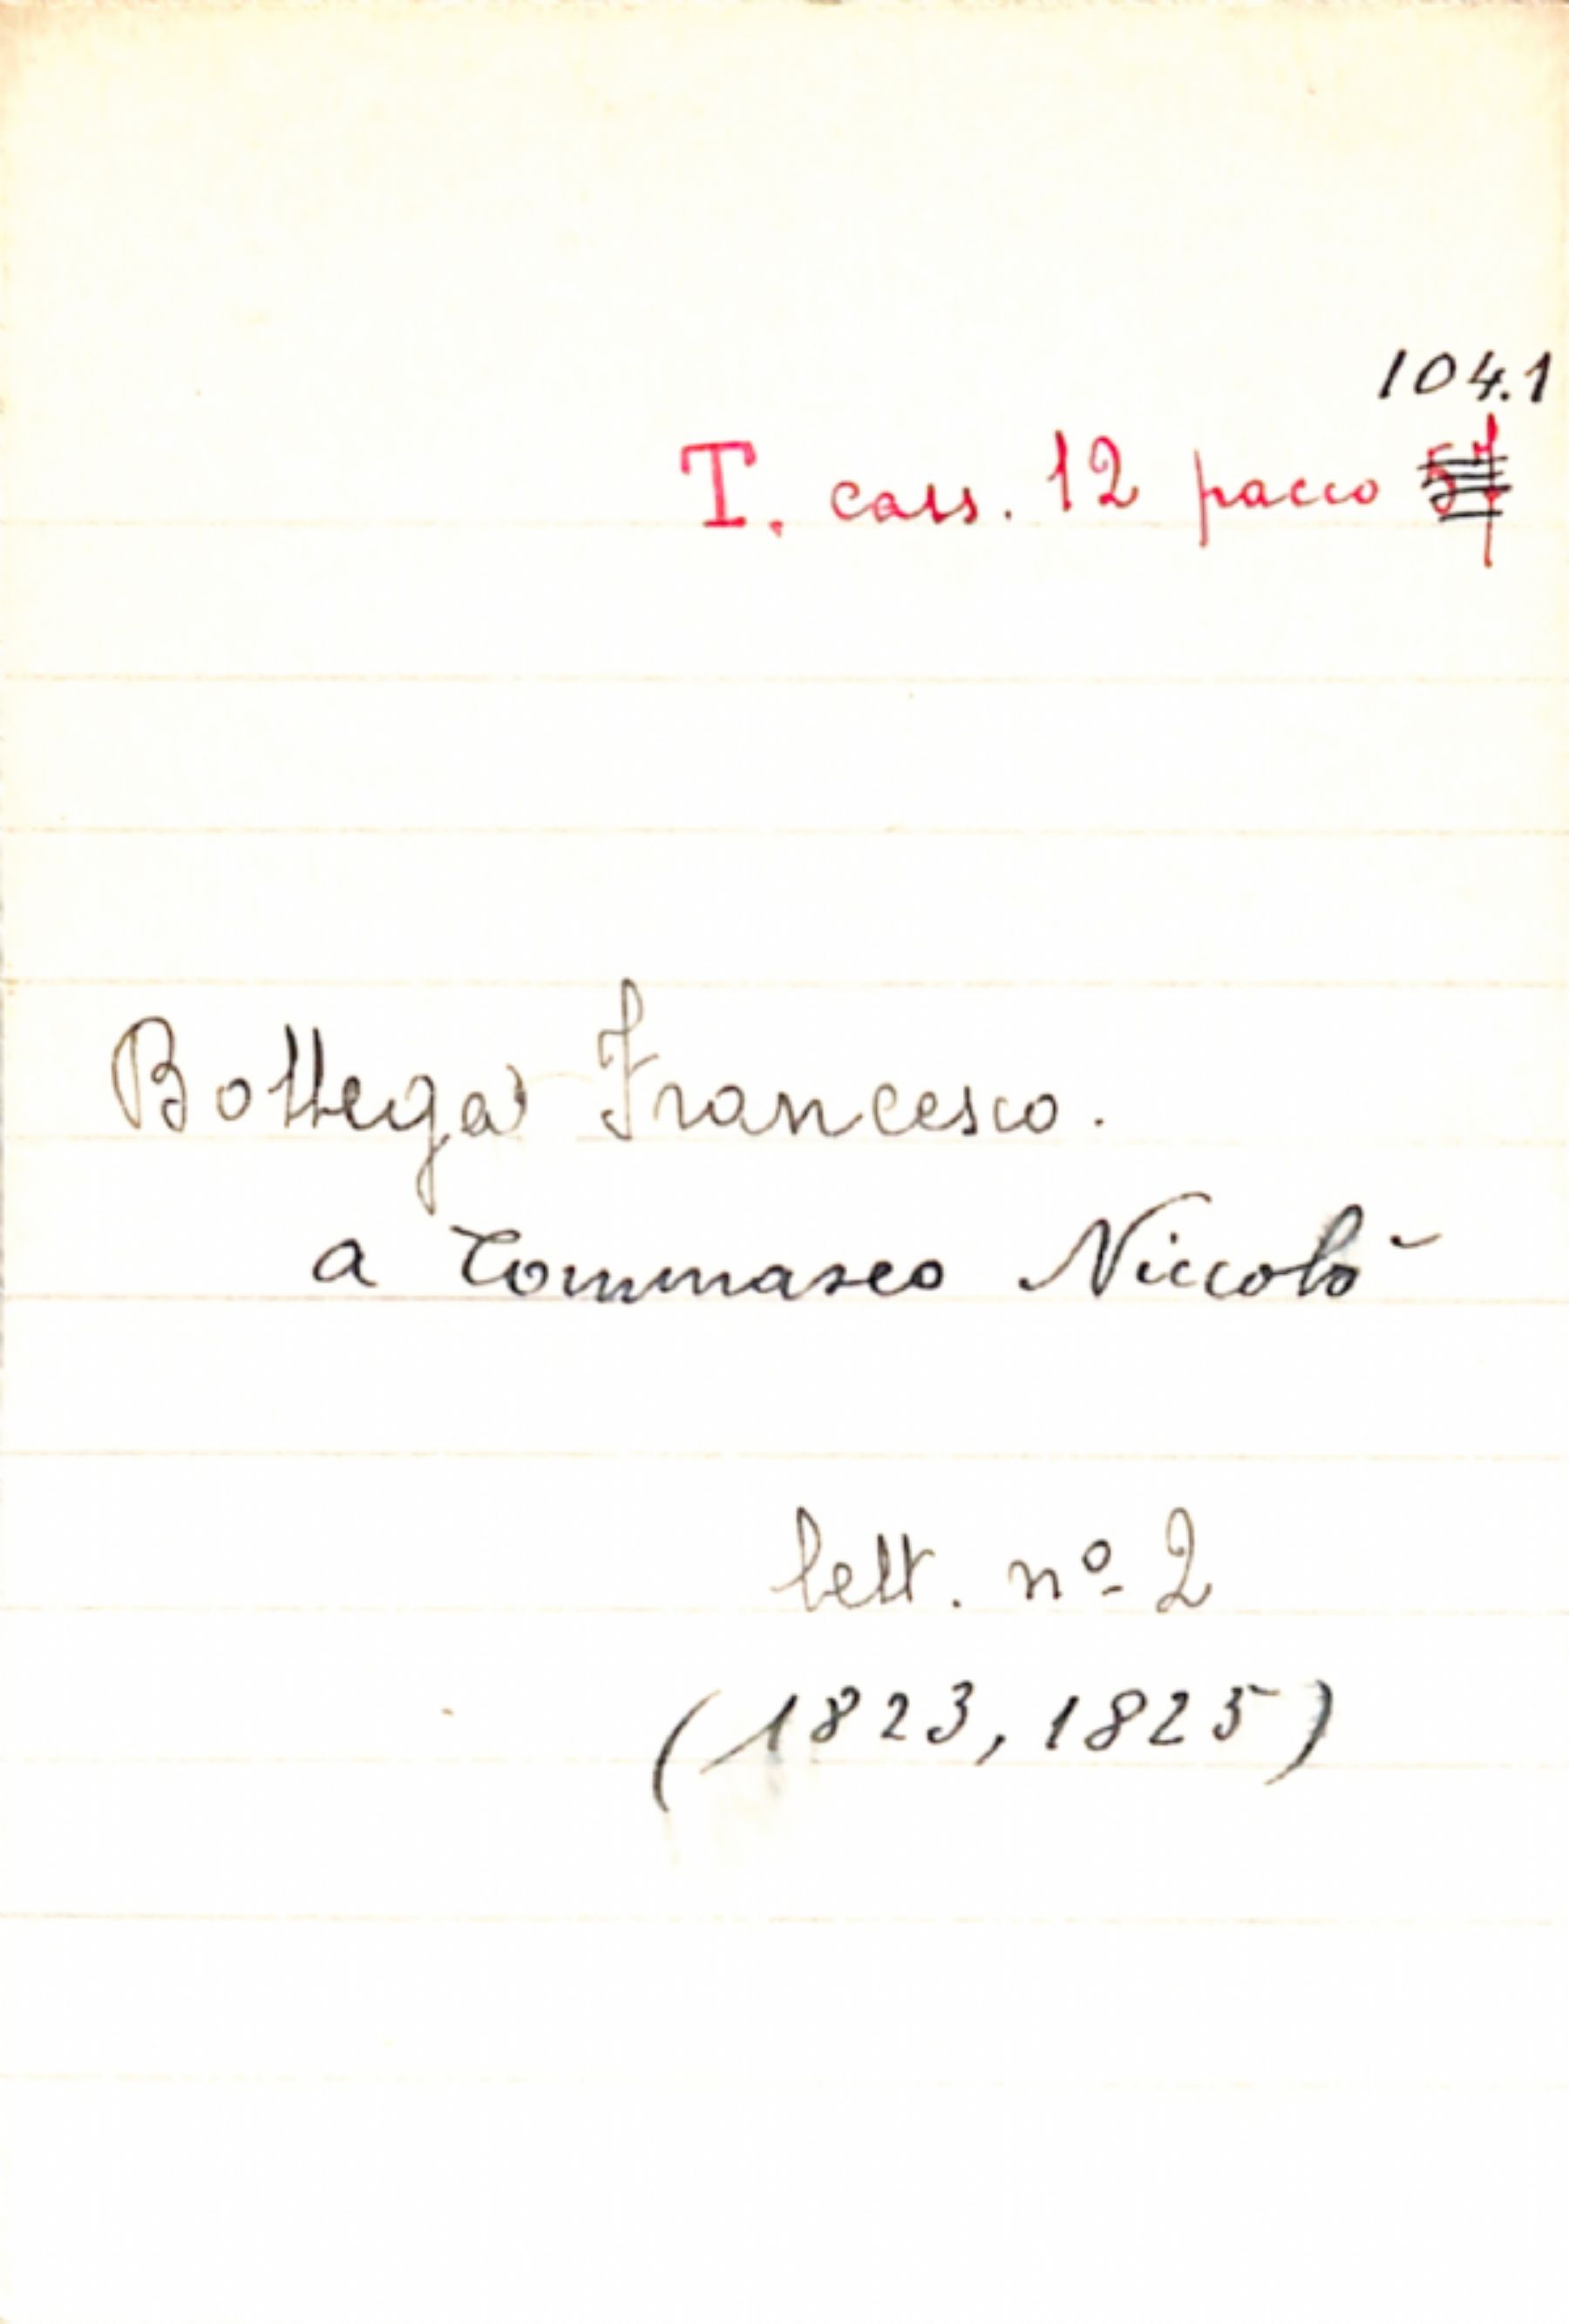 104.1
T. cass. 12 pacco
Bottega Francesco.
a Tommaseo Niccolò
lett. nº 2
(1823, 1825)